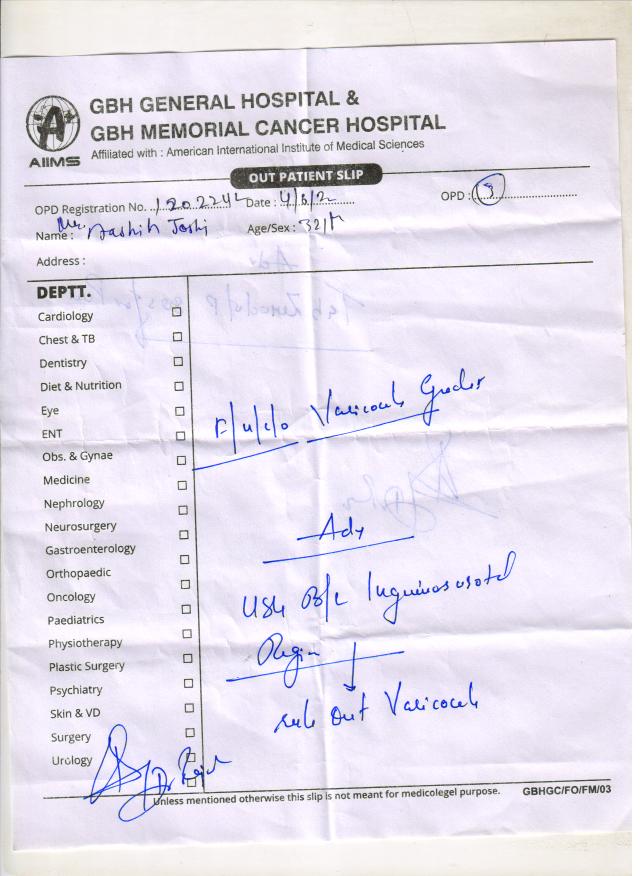 GBH GENERAL HOSPITAL &
GBH MEMORIAL CANCER HOSPITAL
Affiliated with : American International Institute of Medical Sciences
AIIMS
OUT PATIENT SLIP
OPD Registration No. Date : OPD : 3
Name : Joshi Age/Sex : 32/
Address :
DEPTT.
Cardiology
Chest & TB
Dentistry
Diet & Nutrition
Eye
ENT
Obs. & Gynae
Medicine
Nephrology
Neurosurgery
Gastroenterology
Orthopaedic
Oncology
Paediatrics
Physiotherapy
Plastic Surgery
Psychiatry
Skin & VD
Surgery
Urology
Varicocele
Adv
USG B/L Inguinoscrotal
Region
rule out Varicocele
Dr
Unless mentioned otherwise this slip is not meant for medicolegel purpose. GBHGC/FO/FM/03